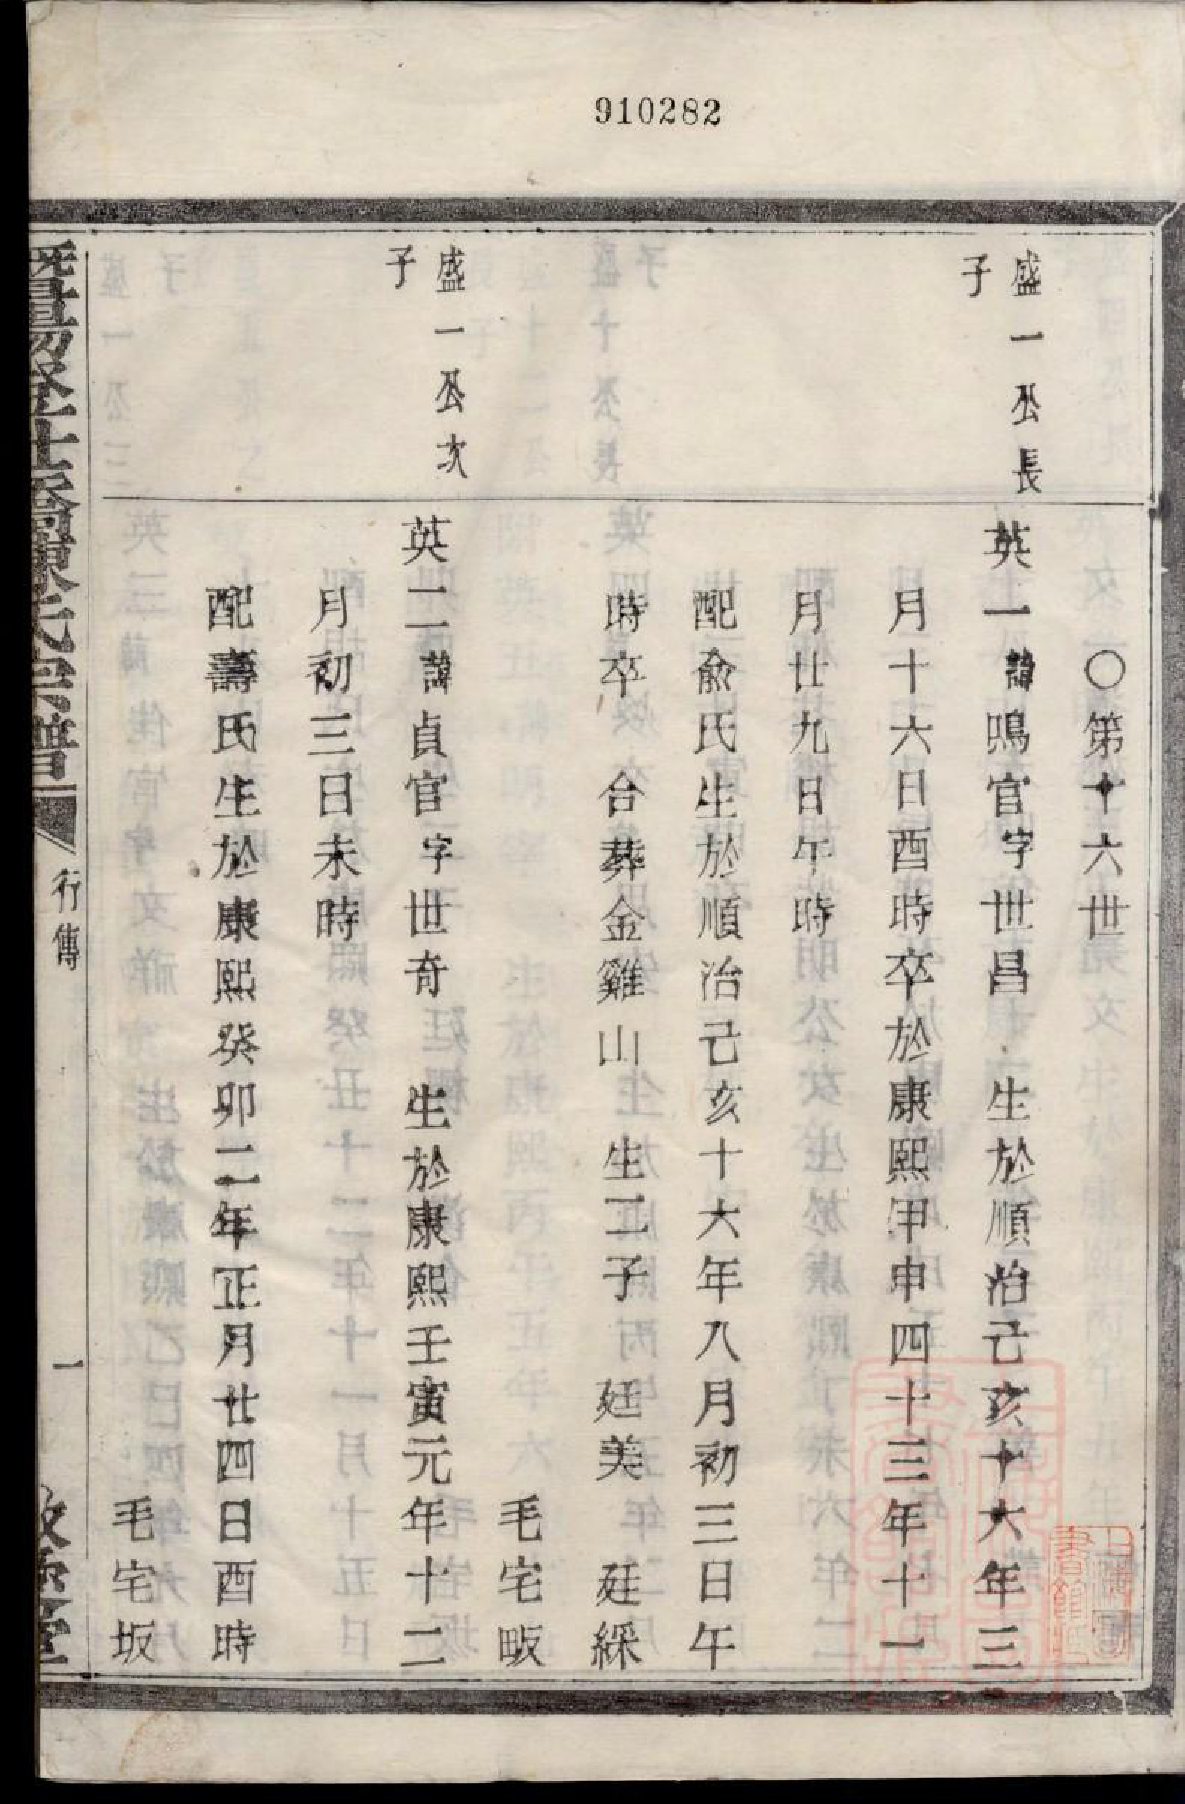 910282
○第十六世
盛一公長
子
英一諱鳴官字世昌 生於順治己亥十六年三
月十六日酉時卒於康熙甲申四十三年十一
月廿九日午時
配俞氏生於順治己亥十六年八月初三日午
時卒 合葬金雞山 生二子 廷美 廷綵
毛宅畈
盛一公次
子
英二諱貞官字世奇 生於康熙壬寅元年十二
月初三日未時
配壽氏生於康熙癸卯二年正月廿四日酉時
毛宅坂
宗譜
行傳
一